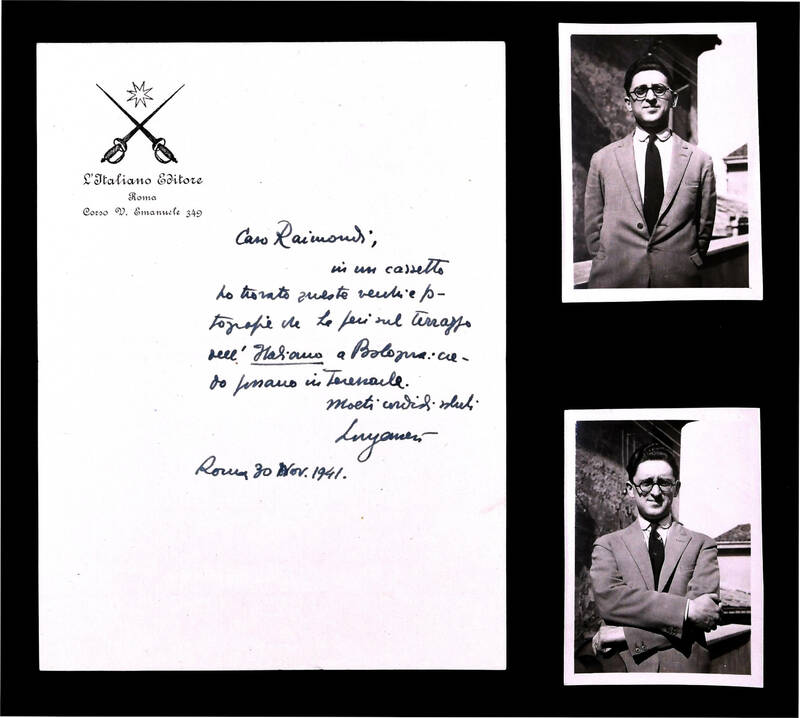 L'Italiano Editore
Roma
Corso V. Emanuele 349
Caro Raimondi,
in un cassetto
ho trovato queste vecchie fo-
tografie che Le feci sul terrazzo
dell'Italiano a Bologna: cre-
do possano interessarLe.
Molti cordiali saluti
Longanesi
Roma 30 Nov. 1941.